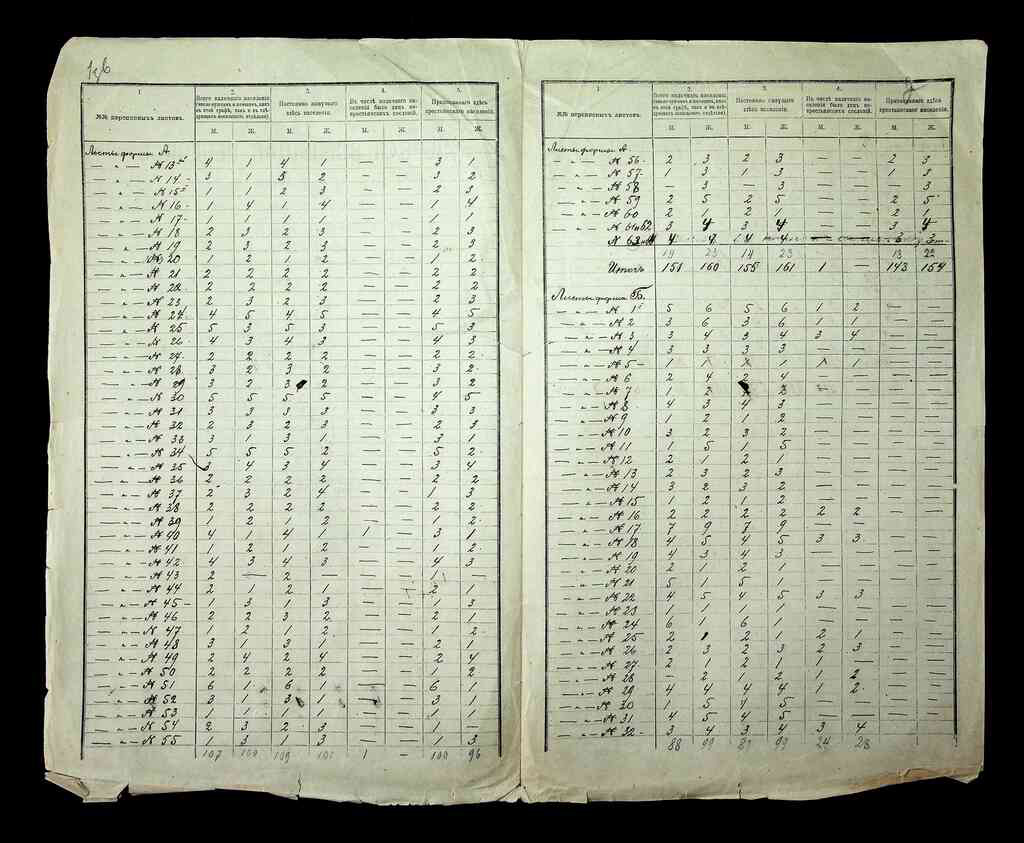 1.
2.
3.
4.
5.
№№ переписныхъ листовъ.
Всего наличнаго населенія
Постоянно живущаго здѣсь населенія.
Въ числѣ наличнаго населенія было лицъ некрестьянскихъ сословій.
Приписаннаго здѣсь крестьянскаго населенія.
М. Ж. М. Ж. М. Ж. М. Ж.
Листы формы А.
— „ — № 13 4 1 4 1 — — 3 1
— „ — № 14 3 1 3 2 — — 3 2
— „ — № 15 1 1 2 3 — — 2 3
— „ — № 16 1 4 1 4 — — 1 4
— „ — № 17 1 1 1 1 — — 1 1
— „ — № 18 2 3 2 3 — — 2 3
— „ — № 19 2 3 2 3 — — 2 3
— „ — № 20 1 2 1 2 — — 1 2
— „ — № 21 2 2 2 2 — — 2 2
— „ — № 22 2 2 2 2 — — 2 2
— „ — № 23 2 3 2 3 — — 2 2
— „ — № 24 4 5 4 5 — — 4 5
— „ — № 25 5 3 5 3 — — 5 3
— „ — № 26 4 3 4 3 — — 4 3
— „ — № 27 2 2 2 2 — — 2 2
— „ — № 28 3 2 3 2 — — 3 2
— „ — № 29 3 2 3 2 — — 3 2
— „ — № 30 5 5 5 5 — — 4 5
— „ — № 31 3 3 3 3 — — 3 3
— „ — № 32 2 3 2 3 — — 2 3
— „ — № 33 3 1 3 1 — — 3 1
— „ — № 34 5 5 5 2 — — 5 2
— „ — № 35 3 4 3 4 — — 3 4
— „ — № 36 2 2 2 2 — — 2 2
— „ — № 37 2 3 2 4 — — 1 3
— „ — № 38 2 2 2 2 — — 2 2
— „ — № 39 1 2 1 2 — — 1 2
— „ — № 40 4 1 4 1 1 — 3 1
— „ — № 41 1 2 1 2 — — 1 2
— „ — № 42 4 3 4 3 — — 4 3
— „ — № 43 2 — 2 — — — 1 —
— „ — № 44 2 1 2 1 — — 2 1
— „ — № 45 1 3 1 3 — — 1 3
— „ — № 46 2 2 3 2 — — 2 1
— „ — № 47 1 2 1 2 — — 1 2
— „ — № 48 3 1 3 1 — — 2 1
— „ — № 49 2 4 2 4 — — 2 4
— „ — № 50 2 2 2 2 — — 1 2
— „ — № 51 6 1 6 1 — — 6 1
— „ — № 52 3 1 3 1 — — 3 1
— „ — № 53 1 1 1 1 — — 1 1
— „ — № 54 2 3 2 3 — — — —
— „ — № 55 1 3 1 3 — — 1 3
107 109 1 — 100 96
1
2.
3.
4.
5.
№№ переписныхъ листовъ.
Всего наличнаго населенія
Постоянно живущаго здѣсь населенія.
Въ числѣ наличнаго населенія было лицъ некрестьянскихъ сословій.
Приписаннаго здѣсь крестьянскаго населенія.
М. Ж. М. Ж. М. Ж. М. Ж.
Листы формы А.
— „ — № 56 2 3 2 3 — — 2 3
— „ — № 57 1 3 1 3 — — 1 3
— „ — № 58 — 3 — 3 — — — 3
— „ — № 59 2 5 2 5 — — 2 5
— „ — № 60 2 1 2 1 — — 2 1
— „ — № 61 и 62 3 4 3 4 — — 3 4
№ 63
19 23 14 23 13 22
Итогъ 151 160 155 161 1 — 143 154
Листы формы Б.
— „ — № 1 5 6 5 6 1 2 — —
— „ — № 2 3 6 3 6 1 1 — —
— „ — № 3 3 4 3 4 3 4 — —
— „ — № 4 3 3 3 3 — — — —
— „ — № 5 1 1 1 1 1 1 — —
— „ — № 6 2 4 2 4 — — — —
— „ — № 7 1 2 2 — — — —
— „ — № 8 4 3 4 3 — — — —
— „ — № 9 1 2 1 2 — — — —
— „ — № 10 3 2 3 2 — — — —
— „ — № 11 1 5 1 5 — — — —
— „ — № 12 2 1 2 1 — — — —
— „ — № 13 2 3 2 3 — — — —
— „ — № 14 3 2 3 2 — — — —
— „ — № 15 1 2 1 2 — — — —
— „ — № 16 2 2 2 2 2 2 — —
— „ — № 17 7 9 7 9 — — — —
— „ — № 18 4 5 4 5 3 3 — —
— „ — № 19 4 3 4 3 — — — —
— „ — № 20 2 1 2 1 — — — —
— „ — № 21 5 1 5 1 — — — —
— „ — № 22 4 5 4 5 3 3 — —
— „ — № 23 1 1 1 1 — — — —
— „ — № 24 6 1 6 1 — — — —
— „ — № 25 2 1 2 1 2 1 — —
— „ — № 26 2 3 2 3 2 3 — —
— „ — № 27 2 1 2 1 1 — — —
— „ — № 28 — 2 1 2 1 2 — —
— „ — № 29 4 4 4 4 1 2 — —
— „ — № 30 1 5 1 5 — — — —
— „ — № 31 4 5 4 5 — — — —
— „ — № 32 3 4 3 4 3 4 — —
88 99 89 99 24 28